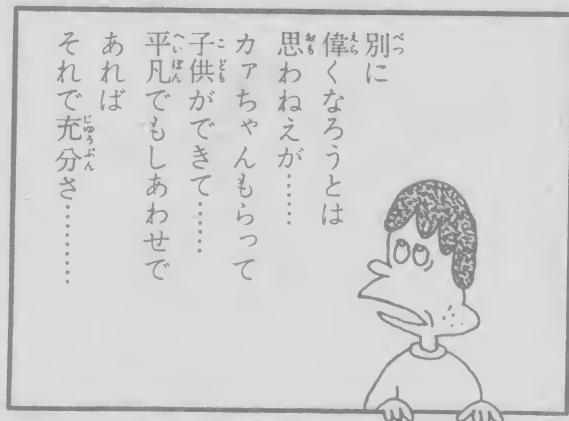 別に
偉くなろうとは
思わねえが……
カァちゃんもらって
子供ができて……
平凡でもしあわせで
あれば
それで充分さ………